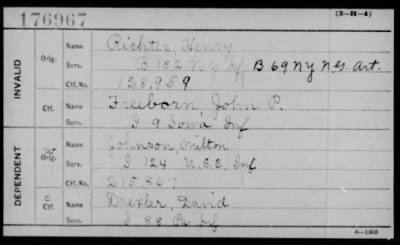 176967
(3-H-4)
INVALID
Orig.
Name Richter, Henry
Serv. B 182 N.Y. Inf B 69 Ny N.G. Art.
Ctf. No. 128,959
Ctf.
Name Freeborn John P.
Serv. I 9 Iowa Inf
DEPENDENT
W
Orig.
Name Johnson, Milton
Serv. I 124 U.S.C. Inf
Ctf. No. 215,867
C
Ctf.
Name Drexler, David
Serv. I 88 Pa Inf
6-1303